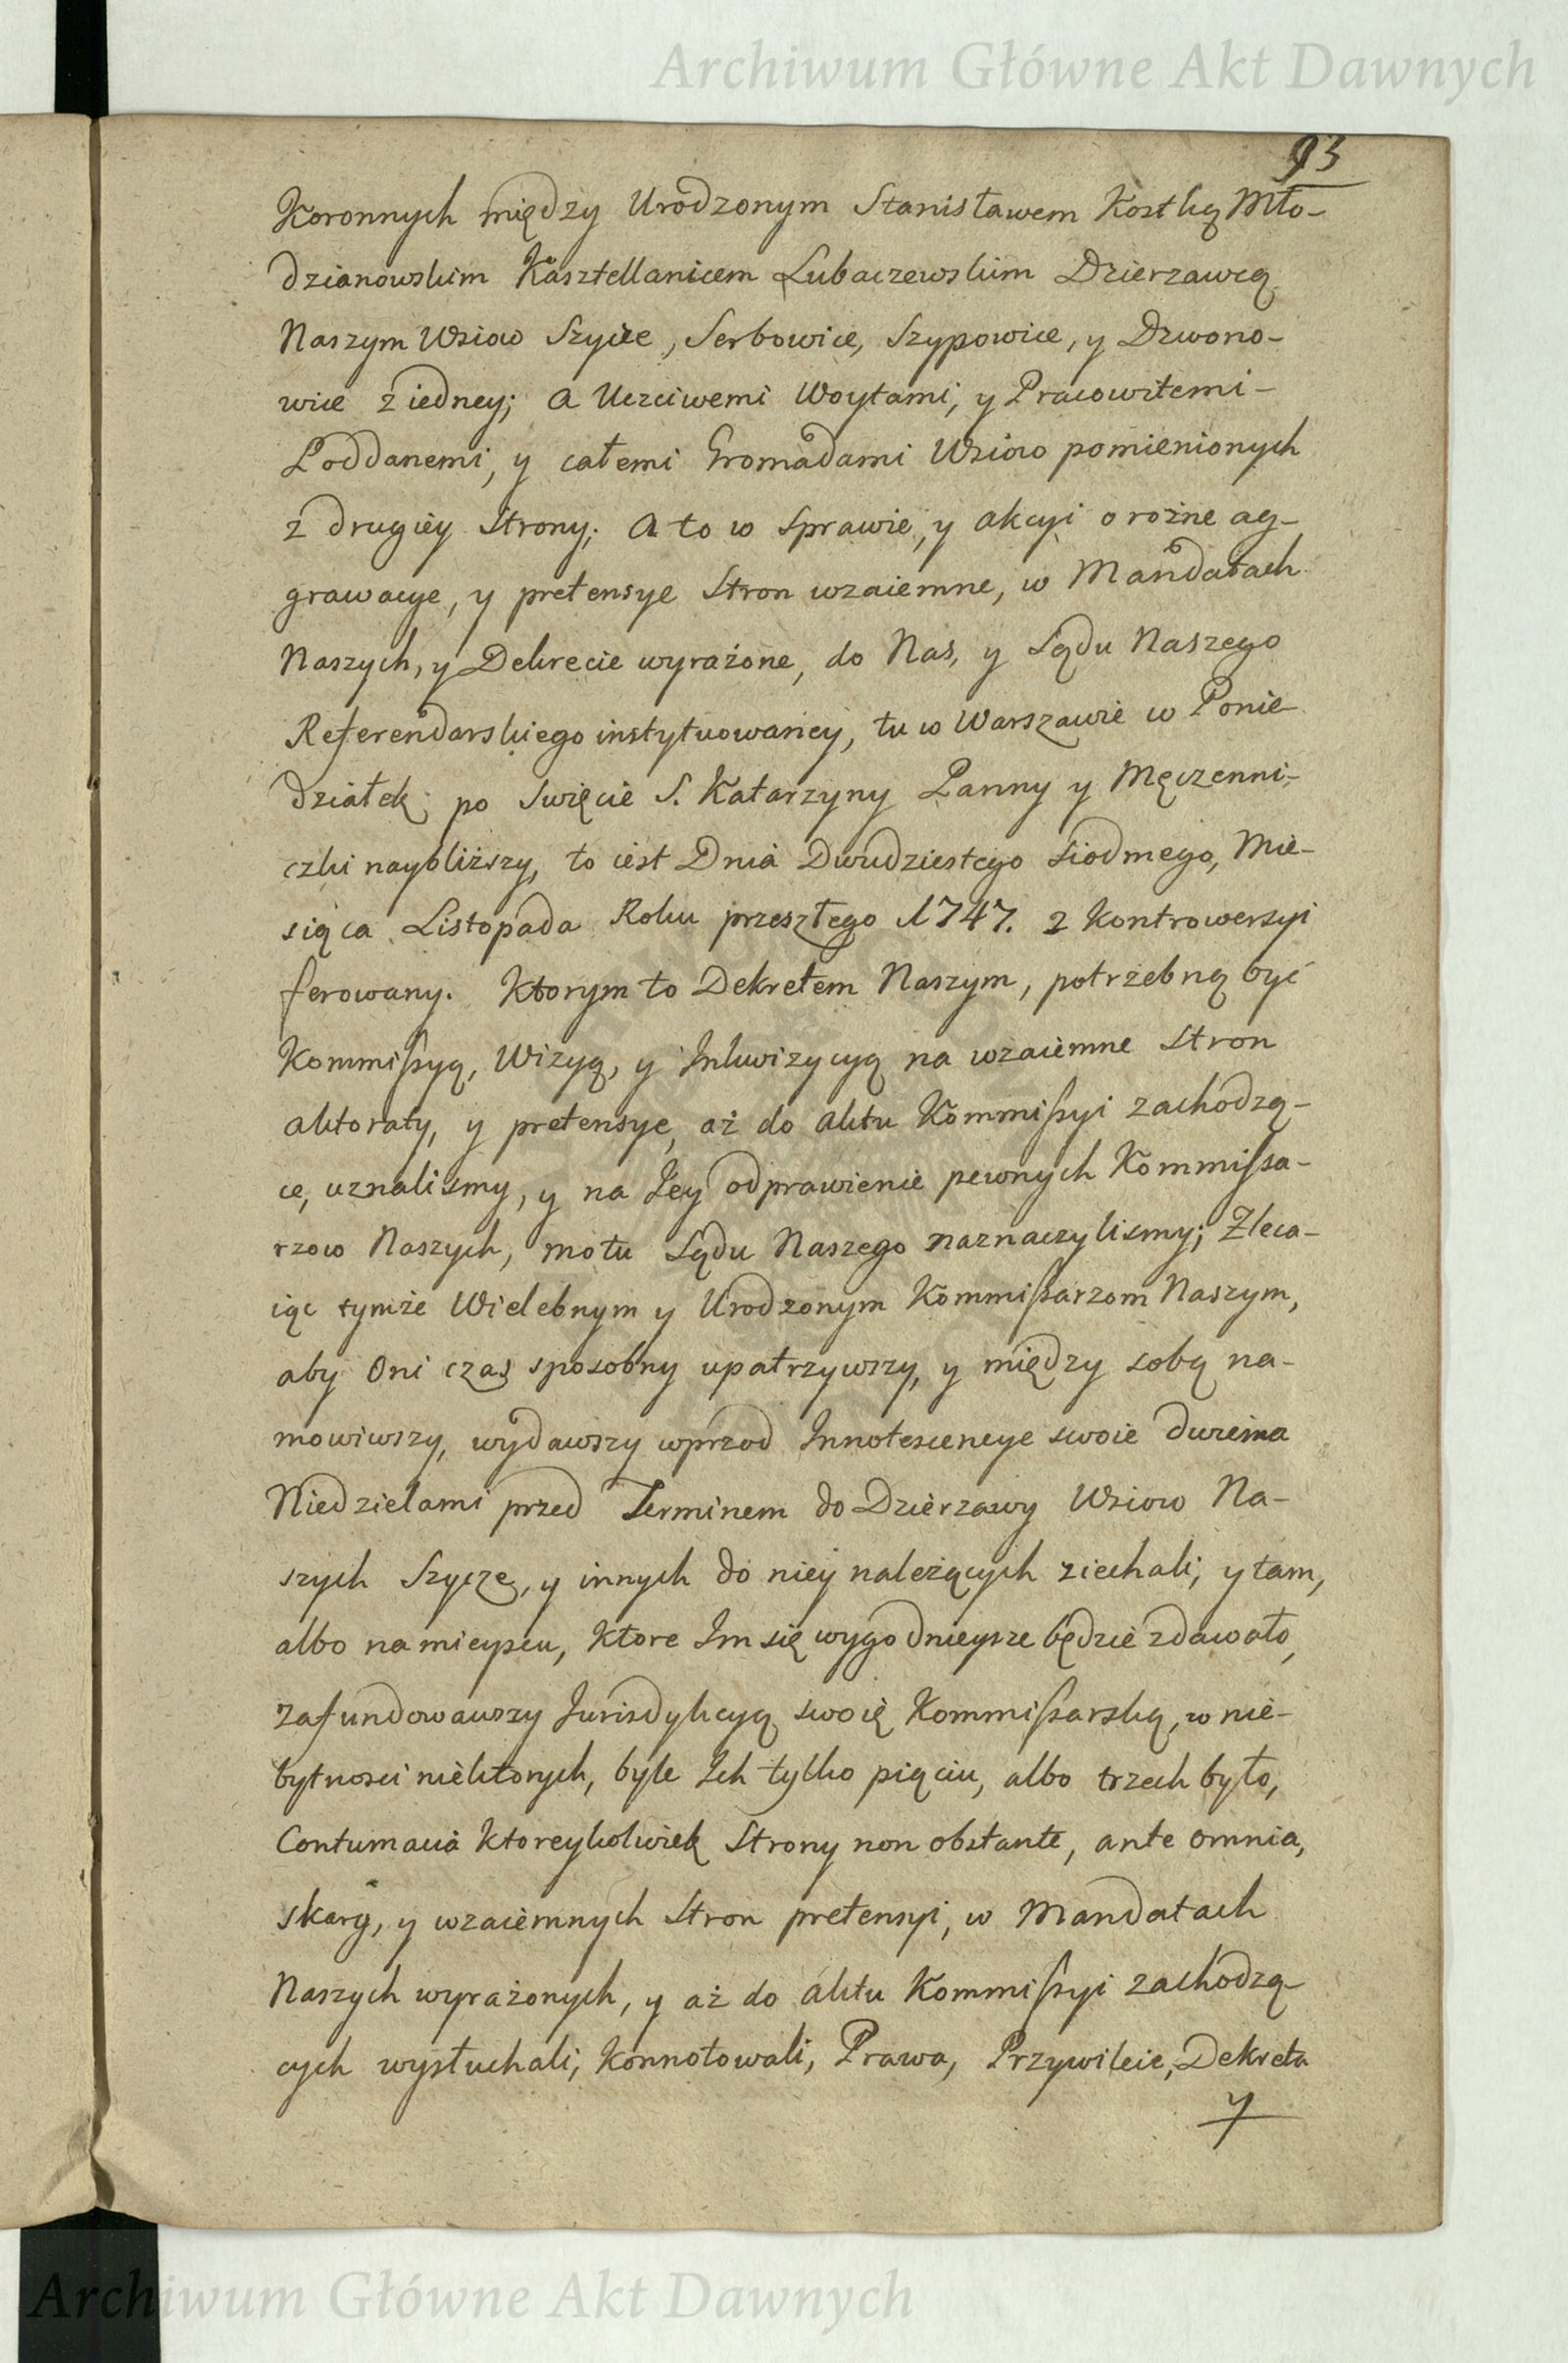 Archiwum Główne Akt Dawnych
93
Koronnych między Urodzonym Stanisławem Kostką Mło-
dzianowskim Kasztellanicem Lubaczewskim Dzierzawcą
Naszym Wsiow Szyice, Serbowice, Szypowice, y Dzwono-
wice z iedney; a Uczciwemi Woytami, y Pracowitemi-
Poddanemi, y całemi Gromadami Wsiow pomienionych
z drugiey Strony; a to w Sprawie, y akcyi o rożne ag-
grawacye, y pretensye Stron wzaiemne, w Mandatach
Naszych, y Dekrecie wyrażone, do Nas, y Sądu Naszego
Referendarskiego instytuowaney, tu w Warszawie w Ponie
działek po Swięcie S. Katarzyny Panny y Męczenni-
czki naybliższy, to iest Dnia Dwudziestego siodmego, Mie-
siąca Listopada Roku przeszłego 1747. z Kontrowersyi
ferowany. Ktorym to Dekretem Naszym, potrzebną być
Kommissyą, Wizyą, y Inkwizycyą na wzaiemne Stron
aktoraty, y pretensye, aż do aktu Kommissyi zachodzą-
ce, uznalismy, y na Jey odprawienie pewnych Kommissa-
rzow Naszych, motu Sądu Naszego naznaczylismy; Zleca-
iąc tymże Wielebnym y Urodzonym Kommissarzom Naszym,
aby Oni czas sposobny upatrzywszy, y między sobą na-
mowiwszy, wydawszy wprzod Innotescencye swoie dwiema
Niedzielami przed Terminem do Dzierzawy Wsiow Na-
szych Szycze, y innych do niey należących ziechali, y tam,
albo na mieyscu, ktore Im się wygodnieysze będzie zdawało,
zafundowawszy Jurisdykcyą swoię Kommissarską, w nie-
bytnosci niektorych, byle Ich tylko pięciu, albo trzech było,
Contumacia ktoreykolwiek Strony non obstante, ante omnia,
skarg, y wzaiemnych Stron pretensyi, w Mandatach
Naszych wyrażonych, y aż do aktu Kommissyi zachodzą-
cych wysłuchali, konnotowali, Prawa, Przywileie, Dekreta
y
Archiwum Główne Akt Dawnych